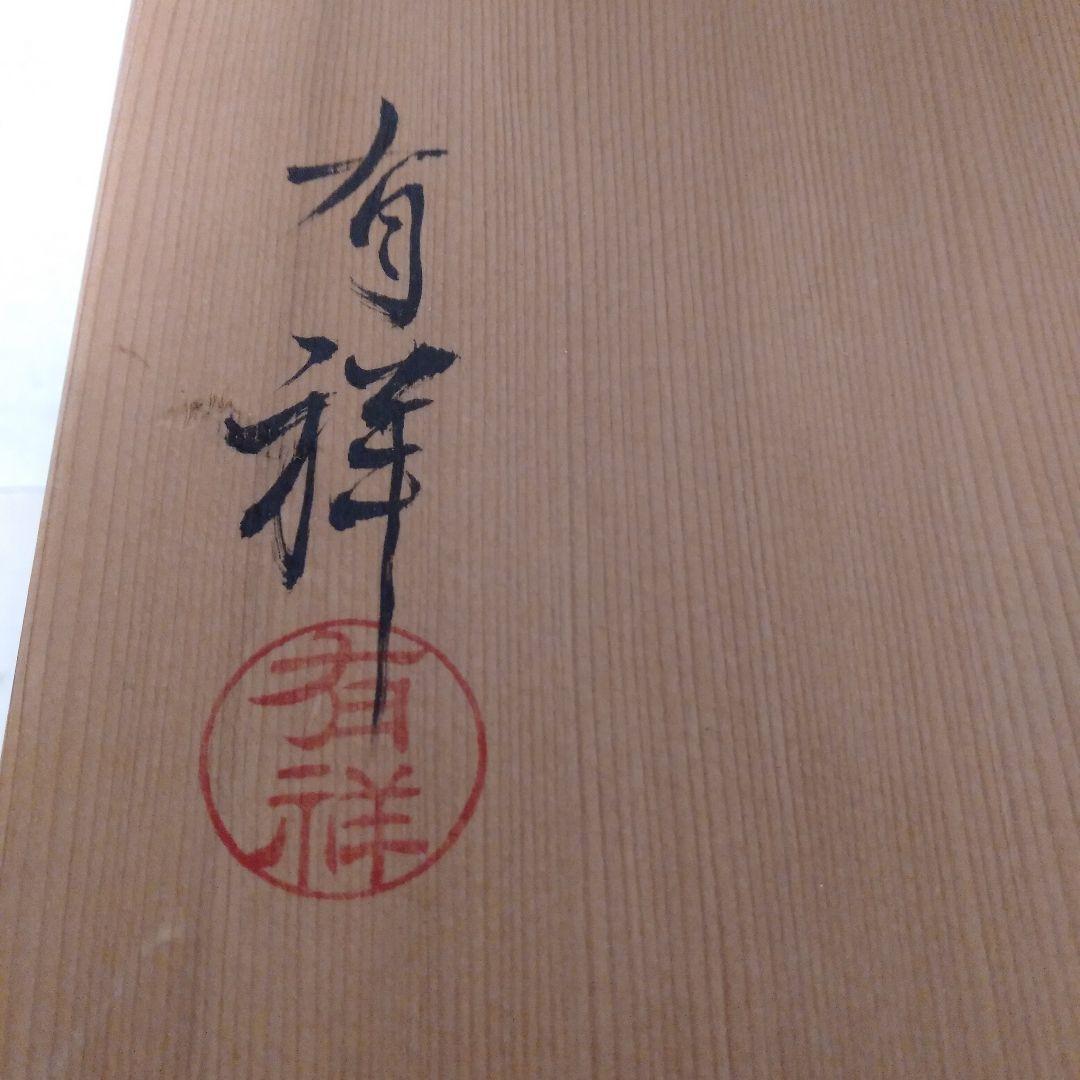 有祥
有祥